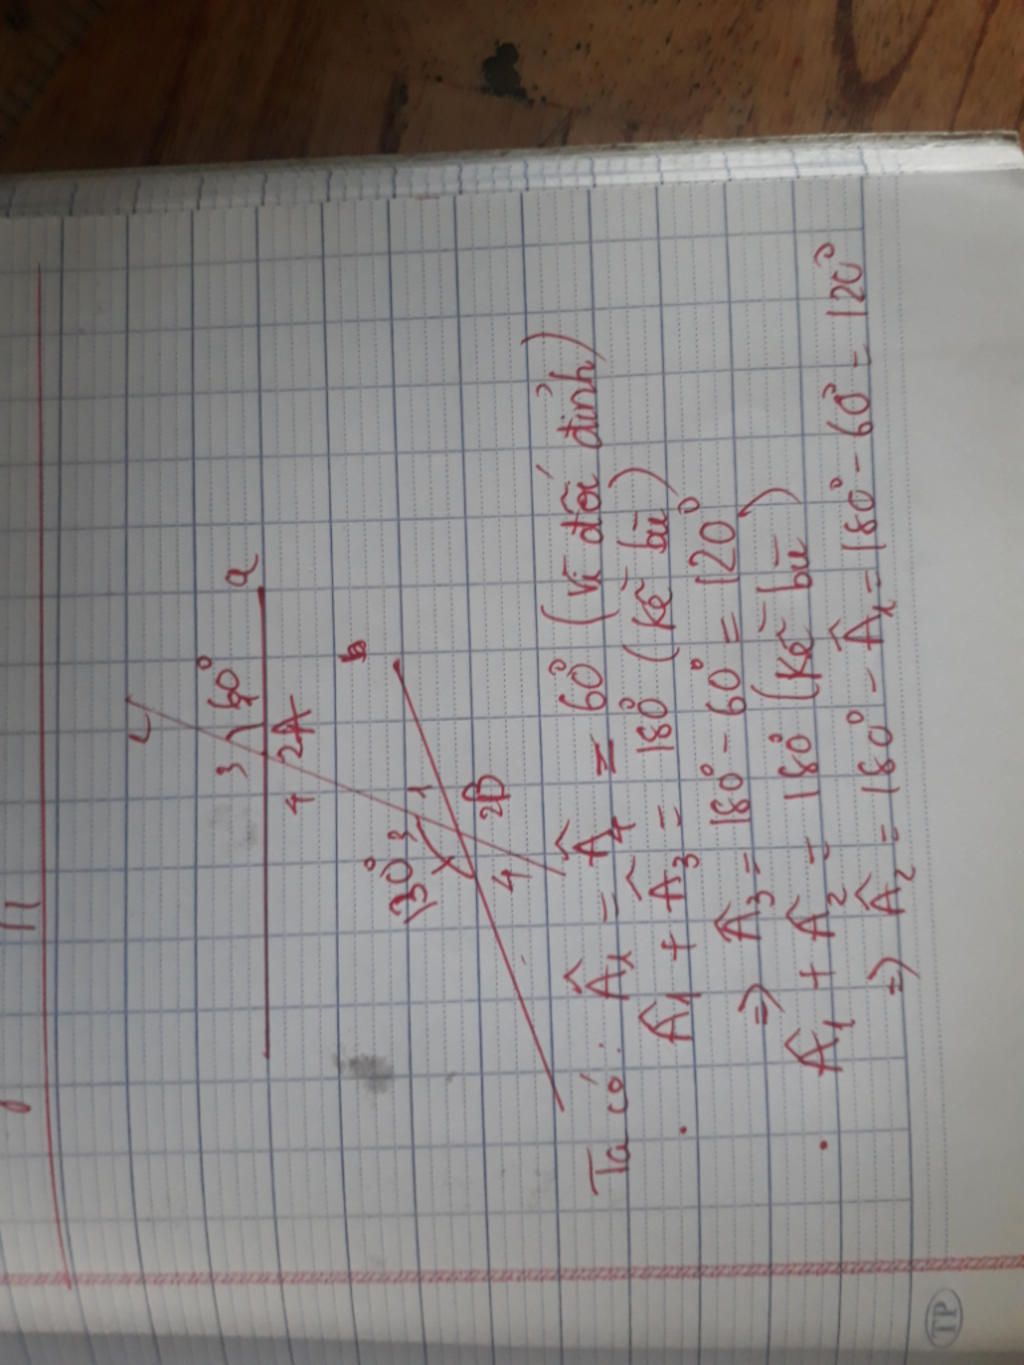 c
a
3
60°
4
2A
b
130°
3
1
4
2B
Ta có: Â₁ = Â₄ = 60° (vì đối đỉnh)
• Â₁ + Â₃ = 180° (kề bù)
=> Â₃ = 180° - 60° = 120°
• Â₁ + Â₂ = 180° (kề bù)
=> Â₂ = 180° - Â₁ = 180° - 60° = 120°
TP